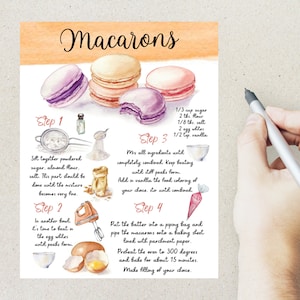 Macarons
1/3 cup sugar
2 tbs. flour
1/8 tbs. salt
2 egg whites
1/2 tsp. vanilla
Step 1
Sift together powdered
sugar, almond flour,
salt. This part should be
done until the mixture
becomes very fine.
Step 3
Mix all ingredients until
completely combined. Keep beating
until stiff peaks form.
Add in vanilla the food coloring of
your choice, cut until combined.
Step 2
In another bowl,
it's time to beat in
the egg whites
until peaks form.
Step 4
Put the batter into a piping bag and
pipe the macarons onto a baking sheet
lined with parchment paper.
Preheat the oven to 300 degrees
and bake for about 15 minutes.
Make filling of your choice.